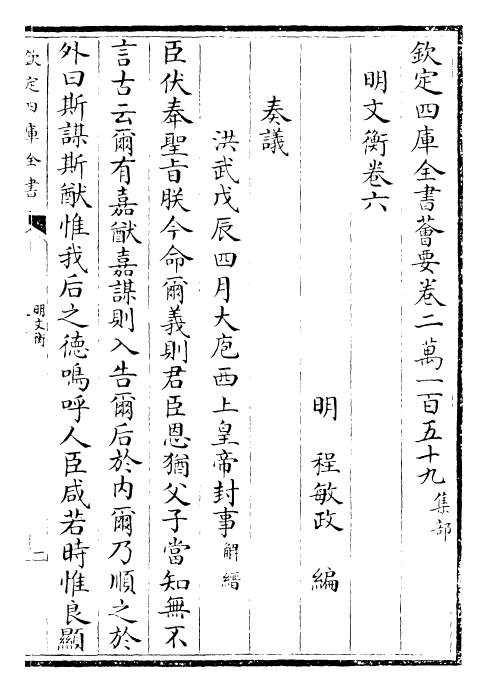 欽定四庫全書薈要卷二萬一百五十九 集部
明文衡卷六
明 程敏政 編
奏議
洪武戊辰四月大庖西上皇帝封事 解縉
臣伏奉聖旨朕今命爾義則君臣恩猶父子當知無不
言古云爾有嘉猷嘉謀則入告爾后於内爾乃順之於
外曰斯謀斯猷惟我后之德嗚呼人臣咸若時惟良顯
欽定四庫全書
明文衡